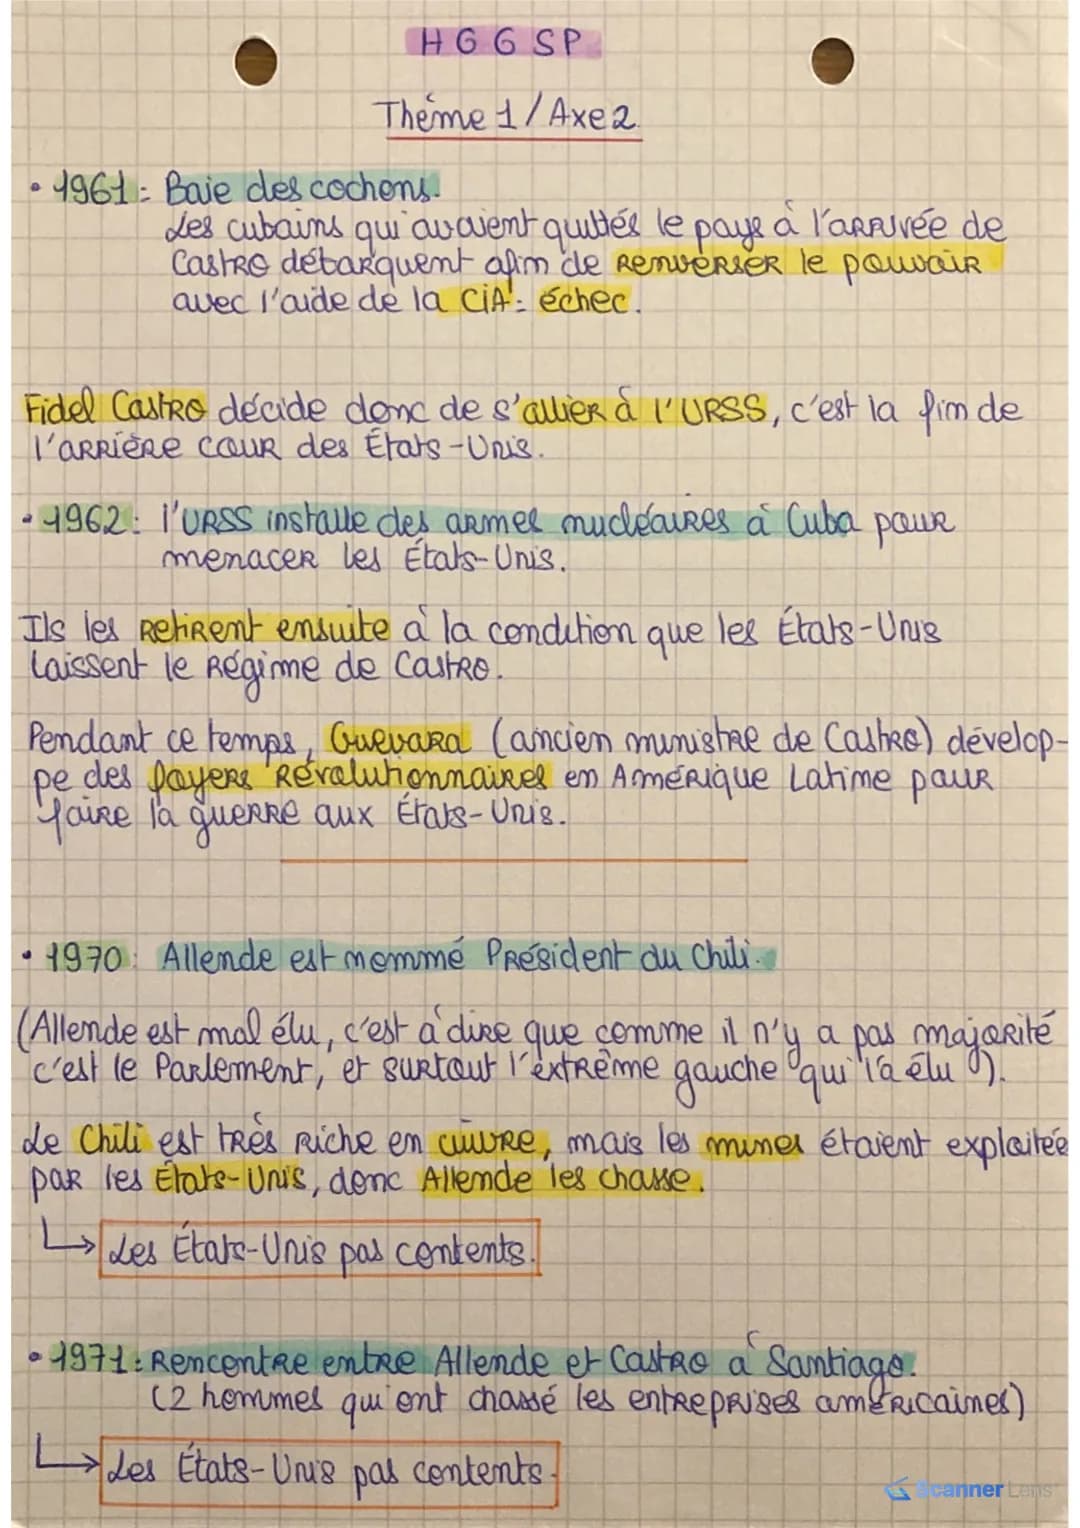 HGGSP
Thème 1 / Axe 2
• 1961 : Baie des cochons.
Les cubains qui avaient quittés le pays à l'arrivée de
Castro débarquent afin de renverser le pouvoir
avec l'aide de la CIA : échec.
Fidel Castro décide donc de s'allier à l'URSS, c'est la fin de
l'arrière cour des États-Unis.
• 1962 : l'URSS installe des armes nucléaires à Cuba pour
menacer les États-Unis.
Ils les retirent ensuite à la condition que les États-Unis
laissent le régime de Castro.
Pendant ce temps, Guevara (ancien ministre de Castro) dévelop-
pe des foyers révolutionnaires en Amérique Latine pour
faire la guerre aux États-Unis.
• 1970 : Allende est nommé Président du Chili.
(Allende est mal élu, c'est à dire que comme il n'y a pas majorité
c'est le Parlement, et surtout l'extrême gauche qui l'a élu).
Le Chili est très riche en cuivre, mais les mines étaient exploitée
par les États-Unis, donc Allende les chasse.
↳ Les États-Unis pas contents.
• 1971 : Rencontre entre Allende et Castro à Santiago.
(2 hommes qui ont chassé les entreprises américaines)
↳ Les États-Unis pas contents.
Scanner Lens